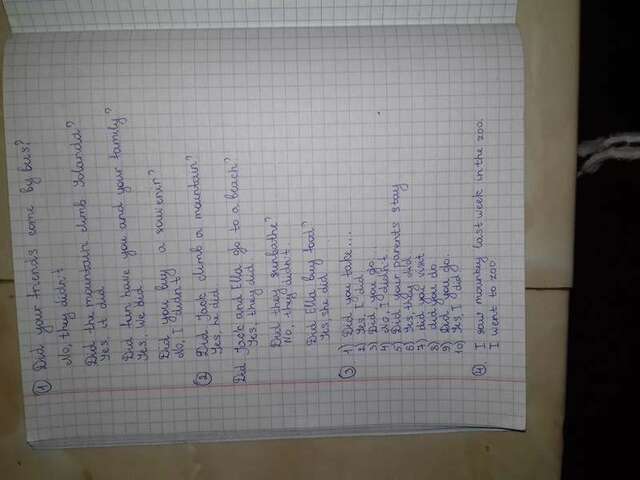 1 Did your friends come by bus?
No, they didn't
Did the mountain climb Yolanda?
Yes, it did
Did fun have you and your family?
Yes, We did
Did you buy a souvenir?
No, I didn't
2 Did Jack climb a mountain?
Yes, he did
Did Jack and Ella go to a beach?
Yes, they did
Did they sunbathe?
No, they didn't
Did Ella buy food?
Yes, she did
3 1) Did you take...
2) Yes, I did
3) Did, you go...
4) No, I didn't
5) Did your parents stay
6) Yes, they did
7) did you visit
8) did you do
9) Did you go.
10) Yes, I did
4. I saw mounkey last week in the zoo.
I went to zoo